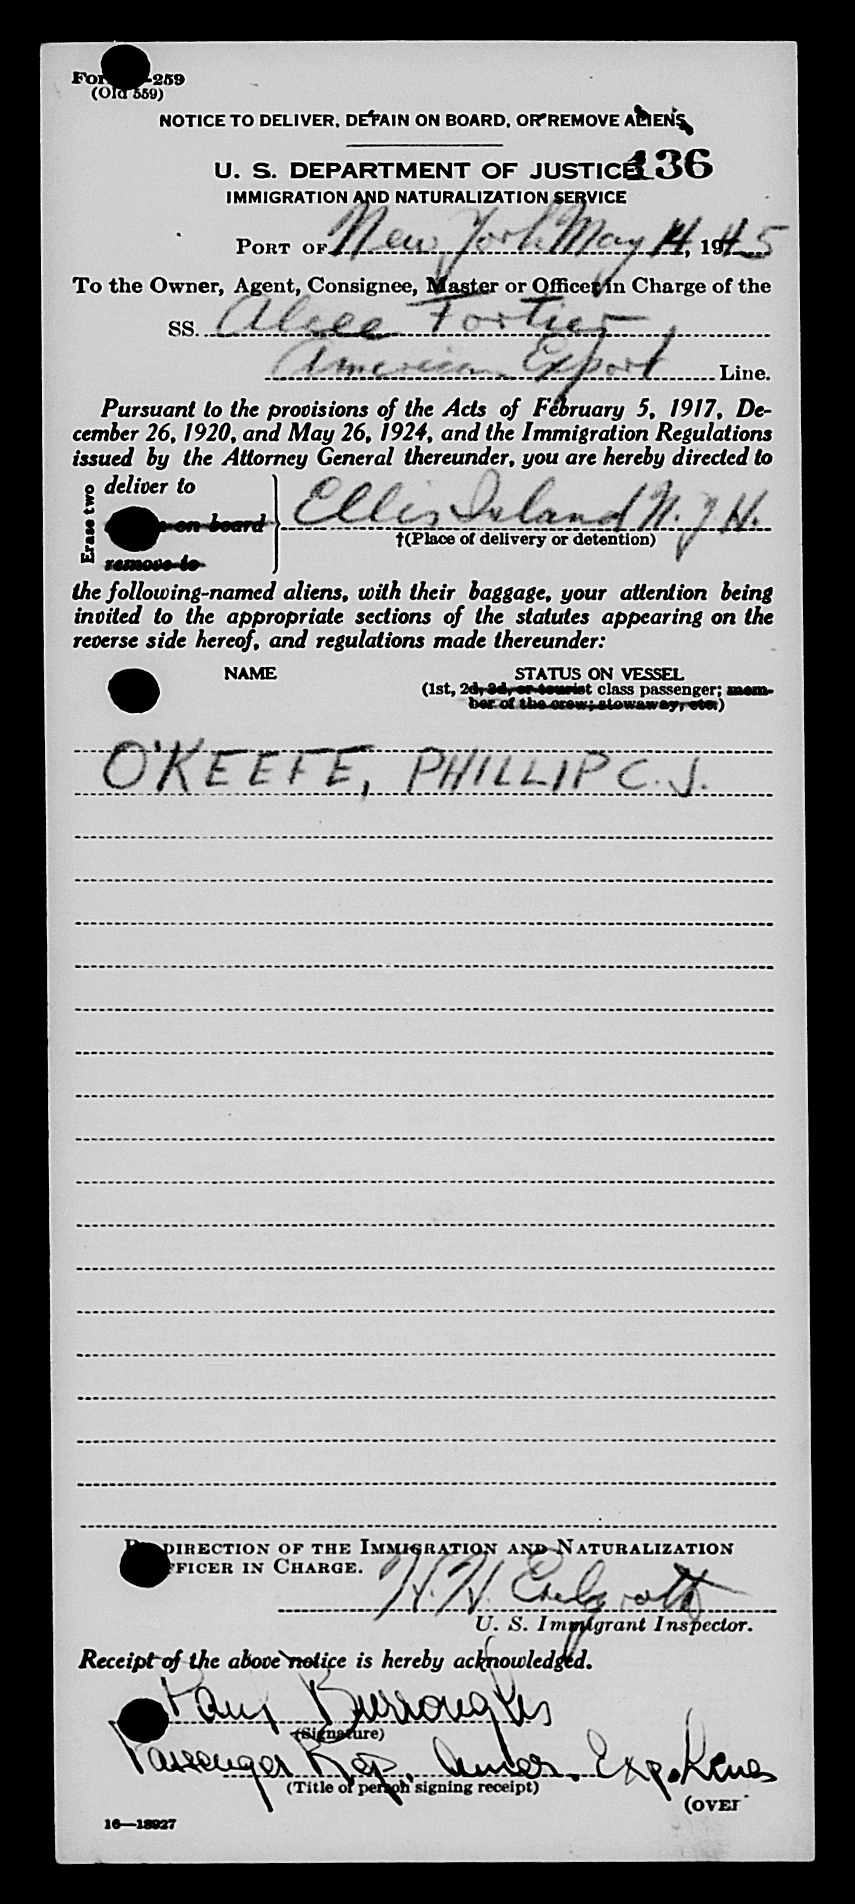 -259
(Old 559)
NOTICE TO DELIVER, DETAIN ON BOARD, OR REMOVE ALIENS
136
U. S. DEPARTMENT OF JUSTICE
IMMIGRATION AND NATURALIZATION SERVICE
PORT OF New York May 14, 1945
To the Owner, Agent, Consignee, Master or Officer in Charge of the
SS. Alcee Fortier
American Export Line.
Pursuant to the provisions of the Acts of February 5, 1917, De-
cember 26, 1920, and May 26, 1924, and the Immigration Regulations
issued by the Attorney General thereunder, you are hereby directed to
Erase two
deliver to
on board
remove to
Ellis Island N.Y.H.
†(Place of delivery or detention)
the following-named aliens, with their baggage, your attention being
invited to the appropriate sections of the statutes appearing on the
reverse side hereof, and regulations made thereunder:
NAME STATUS ON VESSEL
(1st, 2d, 3d, or tourist class passenger; mem-
ber of the crew; stowaway, etc.)
O'KEEFE, PHILLIP C. J.
DIRECTION OF THE IMMIGRATION AND NATURALIZATION
FFICER IN CHARGE.
H. H.
U. S. Immigrant Inspector.
Receipt of the above notice is hereby acknowledged.
Paul Burroughs
(Signature)
Passenger Rep. Amer. Exp. Lines
(Title of person signing receipt)
(OVER
16—18927